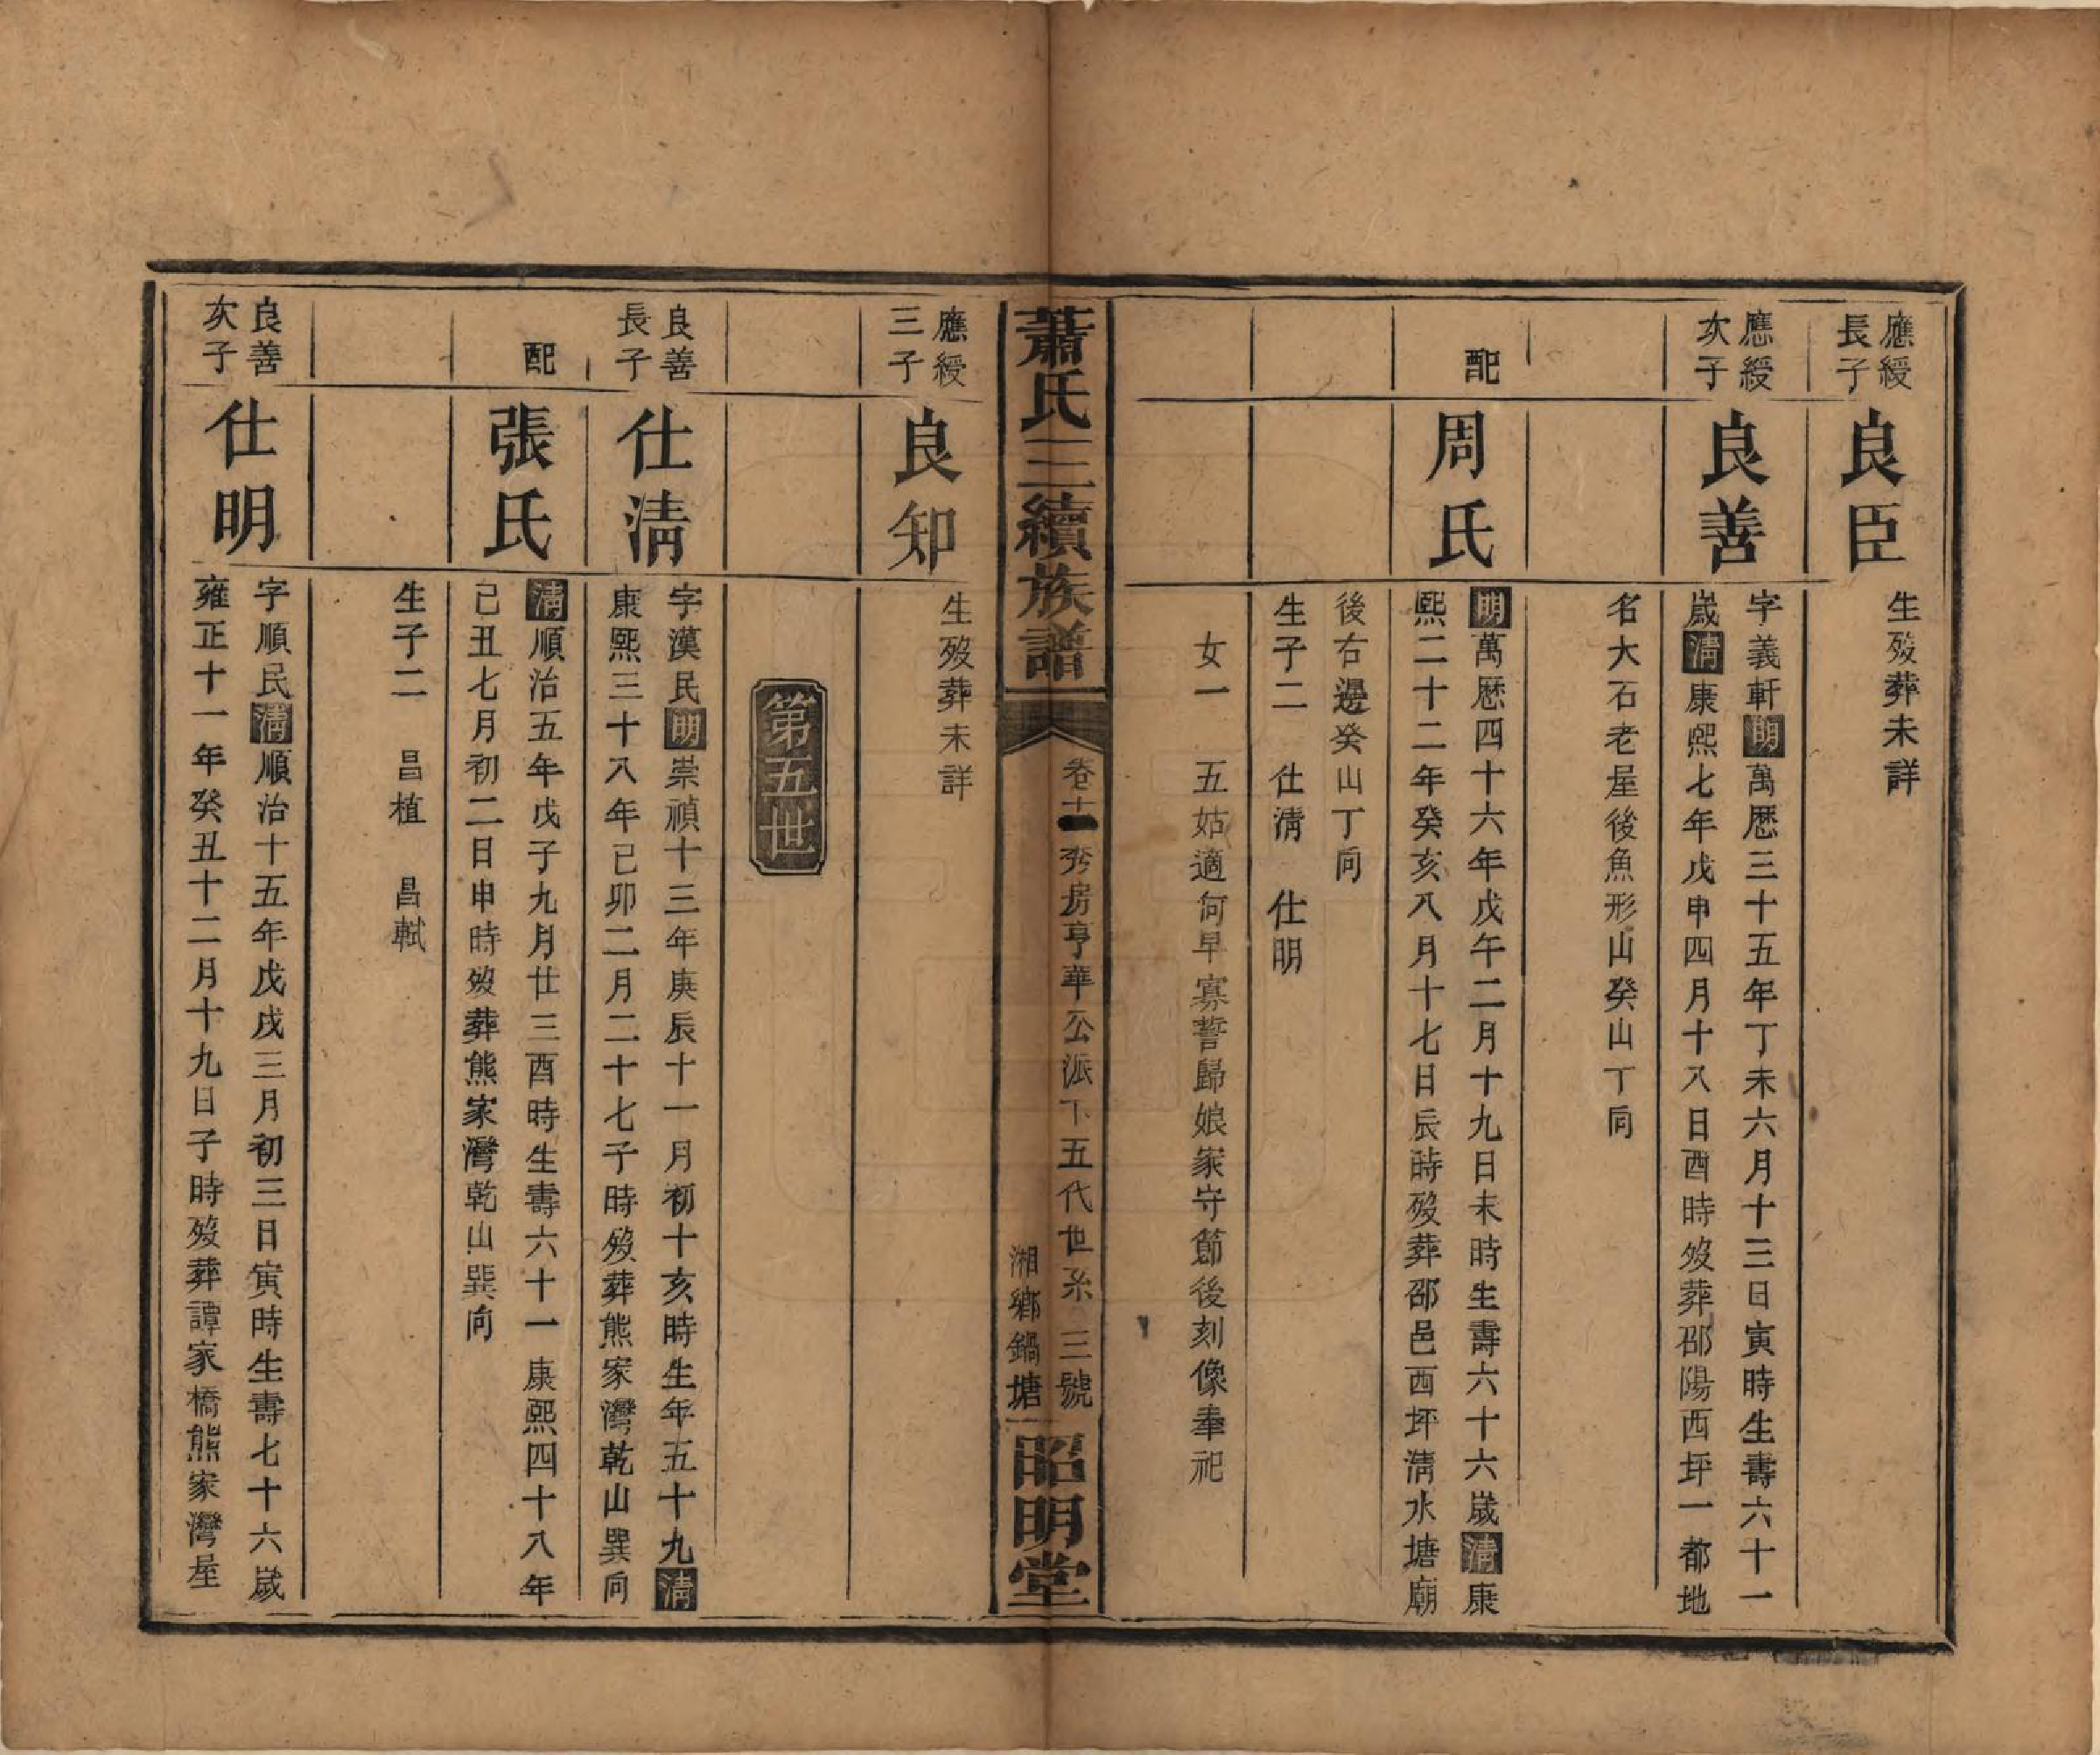 應綬
長子
良臣
生歿葬未詳
應綬
次子
良善
字義軒明萬歷三十五年丁未六月十三日寅時生壽六十一
歲清康熙七年戊申四月十八日酉時歿葬邵陽西坪一都地
名大石老屋後魚形山癸山丁向
配
周氏
明萬歷四十六年戊午二月十九日未時生壽六十六歲清康
熙二十二年癸亥八月十七日辰時歿葬邵邑西坪清水塘廟
後右邊癸山丁向
生子二 仕清 仕明
女一 五姑適何早寡誓歸娘家守節後刻像奉祀
蕭氏三續族譜
卷十一 發房亨華公派下五代世系 三號
湘鄉鍋塘
昭明堂
應綬
三子
良知
生歿葬未詳
第五世
良善
長子
仕清
字漢民明崇禎十三年庚辰十一月初十亥時生年五十九清
康熙三十八年己卯二月二十七子時歿葬熊家灣乾山巽向
配
張氏
清順治五年戊子九月廿三酉時生壽六十一康熙四十八年
己丑七月初二日申時歿葬熊家灣乾山巽向
生子二 昌植 昌軾
良善
次子
仕明
字順民清順治十五年戊戌三月初三日寅時生壽七十六歲
雍正十一年癸丑十二月十九日子時歿葬譚家橋熊家灣屋